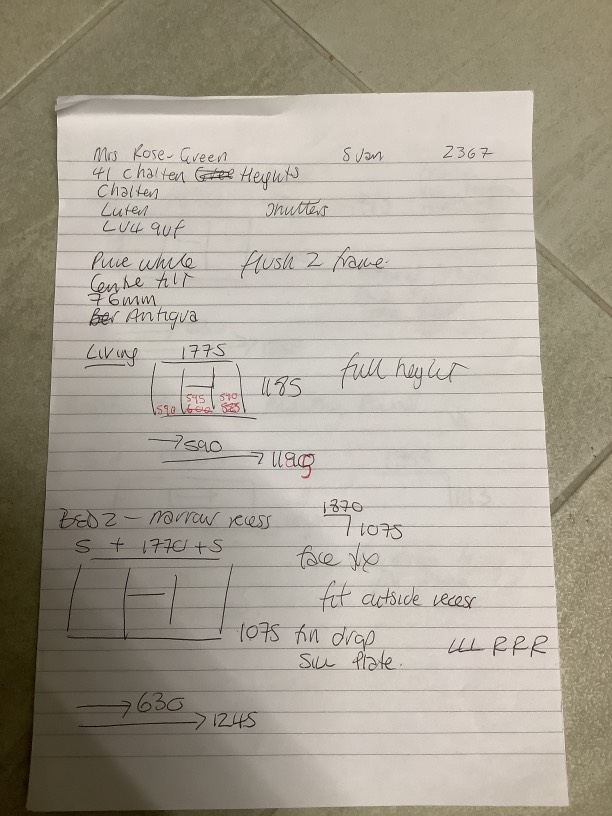 Mrs Rose-Green 5 Jan 2367
41 Chalten Heights
Chalten
Luten Shutters
LU4 9UF
Pure white flush Z frame.
Centre tilt
76mm
Antigua
Living 1775
1185 full height
590 595 590
→590
→1195
BED 2 - narrow recess 1870
5 + 1770 + 5 1075
face fix
fit outside recess
1075 fin drop LLL RRR
Sill Plate.
→630
→1245